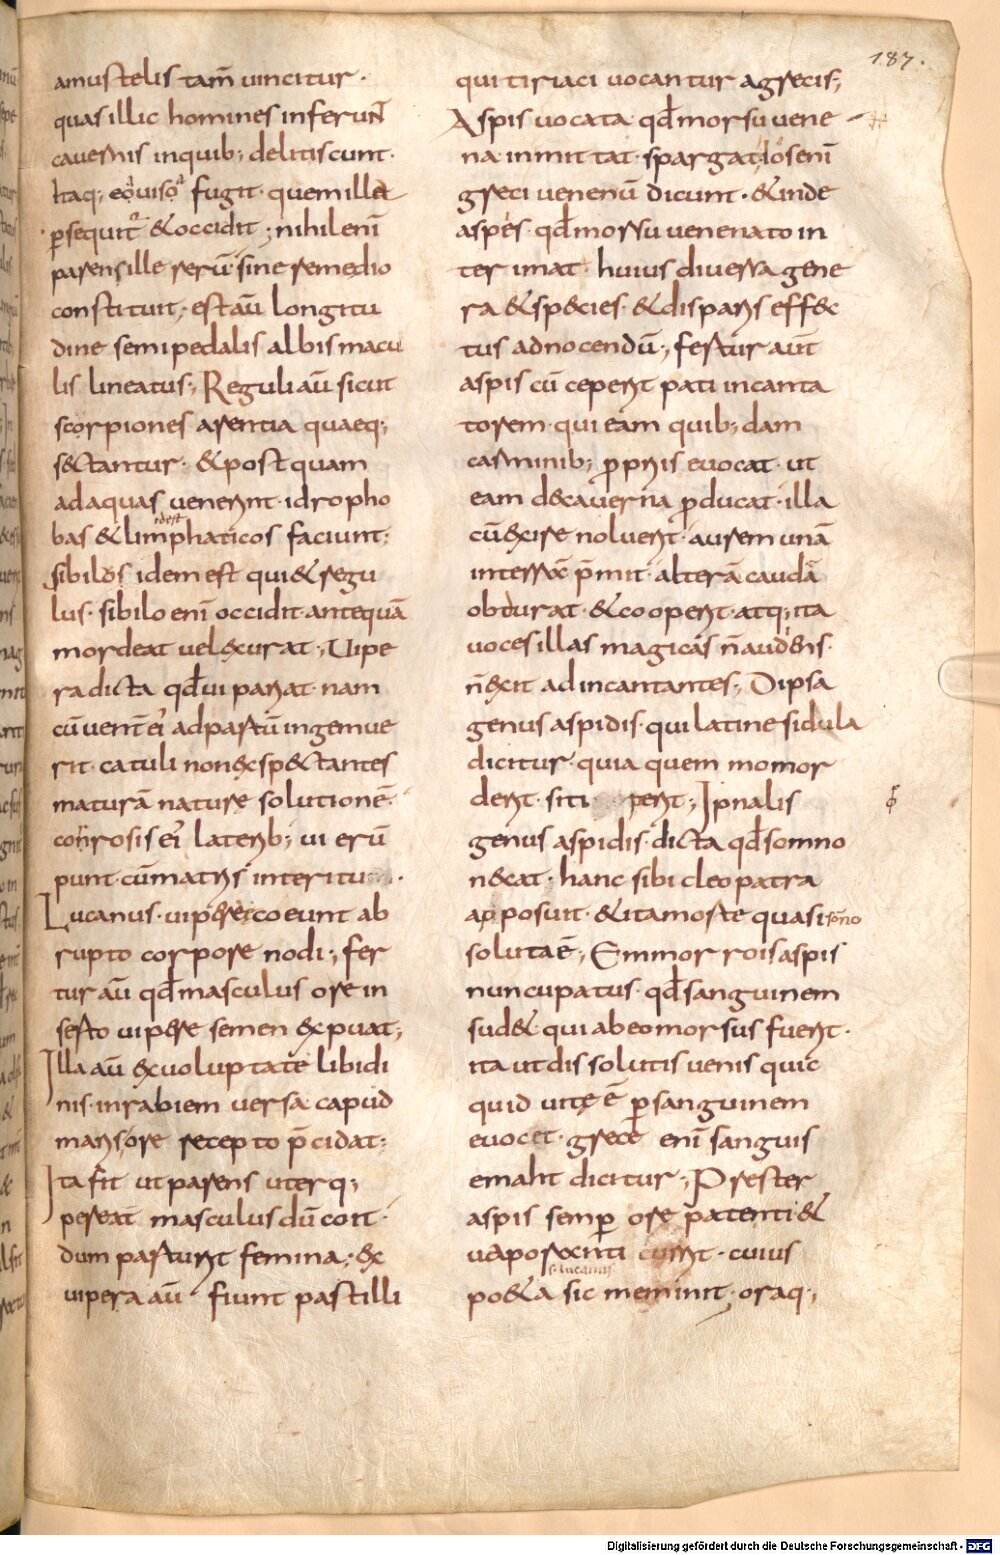 187.
amustelis tam̅ uincitur·
quas illic homines inferunt
cauernis inquib; delitiscunt·
Itaq; eo uiso fugit· quem ille
p̱sequit᷑ & occidit; nihil eni̅
parens ille reru̅ sine remedio
constituit; est au̅ longitu
dine semipedalis albis macu
lis lineatus; Reguli au̅ sicut
scorpiones arentia quaeq;
s&tantur· & postquam
ad aquas uenerint· idropho
bas & limphaticos faciunt;
idest
Sibilos idem est qui & regu
lus· sibilo eni̅ occidit· antequa̅
mordeat uel &curat; Uipe
ra dicta qd̅ ui pariat· nam
cu̅ uent̅ ei᷑ ad partu̅ ingemue
rit· catuli non exsp&tantes
matura̅ naturę solutione̅·
corrosis ei᷑ laterib; ui eru̅
punt· cu̅ matris interitu ·
Lucanus· uiperę coeunt ab
rupto corpore nodi; fer
tur au̅ qd̅ masculus ore in
serto uiperę semen expuat;
Illa au̅ ex uoluptate libidi
nis· in rabiem uersa capud
maris ore recepto p̅cidat;
Ita fit ut parens uterq;
pereat masculus du̅ coit·
dum parturit femina; ex
uipera au̅ fiunt pastilli
qui tiriaci uocantur a grecis;
Aspis uocata qd̅ morsu uene
na inmittat· spargat· Ios eni̅
greci uenenu̅ dicunt· & inde
aspes· qd̅ morsu uenenato in
terimat· huius diuersa gene
ra & sp&ies· & dispares eff&
tus ad nocendu̅; fertur aut̅
aspis cu̅ ceperit pati incanta
torem· qui eam quib;dam
carminib; p̱priis euocat· ut
eam de cauerna p̱ducat· illa
cu̅ exire noluerit· aurem una̅
interrae p̅mit· altera̅ cauda̅
obturat· & cooperit· atq; ita
uoces illas magicas n̅ audiens·
n̅ exit ad incantantes; Dipsa
genus aspidis· qui latine sidula
dicitur· quia quem momor
derit· siti perit; Ipnalis
genus aspidis· dicta qd̅ somno
n&at· hanc sibi cleopatra
apposuit· & ita morte quasi so̅no
soluta e̅; Emmorrois aspis
nuncupatus· qd̅ sanguinem
sud& qui ab eo morsus fuerit·
ita ut dissolutis uenis quic
quid uitę e̅ p̱ sanguinem
euocet· grece eni̅ sanguis
emaht dicitur; Prester
aspis semp̱ ore patenti &
uaporanti currit· cuius
s· lucanus
po&a sic meminit· oraq;